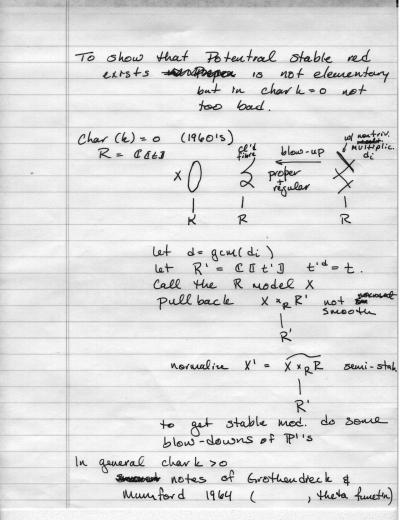 To show that Potential stable red
exists is not elementary
but in char k=0 not
too bad.
Char (k) = 0 (1960's)
R = ℂ[[t]]
cl'd
fibre
blow-up
proper
+
regular
w/ nontriv.
multiplic.
di
X
K R R
let d = gcm(di)
let R' = ℂ[[t']] t'^d = t.
Call the R model X
pull back X ×_R R' not
smooth
R'
normalize X' = X ×_R R semi-stab
R'
to get stable mod. do some
blow-downs of ℙ¹'s
In general char k > 0
notes of Grothendieck &
Mumford 1964 ( , theta functn)